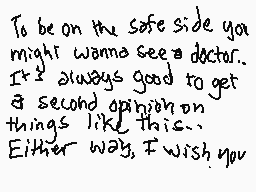 To be on the safe side you
might wanna see a doctor..
It's always good to get
a second opinion on
things like this..
Either way, I wish you